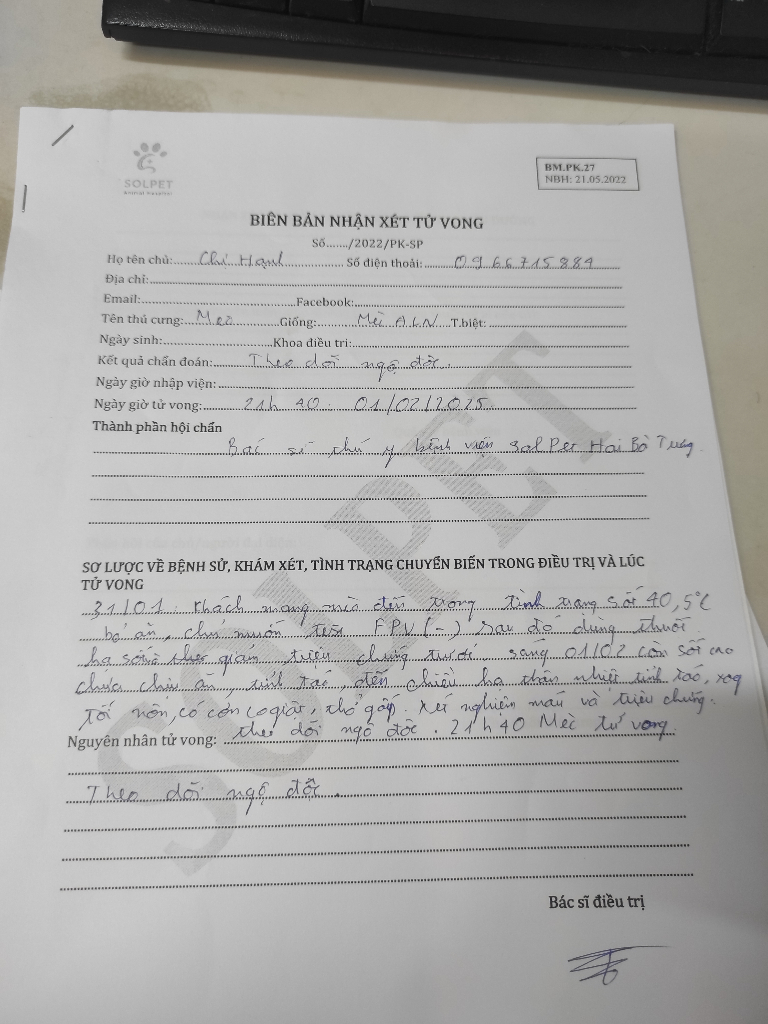 SOLPET
Animal Hospital
BM.PK.27
NBH: 21.05.2022
BIÊN BẢN NHẬN XÉT TỬ VONG
Số......./2022/PK-SP
Họ tên chủ: Chị Hạnh Số điện thoại: 0966715884
Địa chỉ:
Email: Facebook:
Tên thú cưng: Mèo Giống: Mèo ALN T.biệt:
Ngày sinh: Khoa điều trị:
Kết quả chẩn đoán: Theo dõi ngộ độc.
Ngày giờ nhập viện:
Ngày giờ tử vong: 21h 40 01/02/2025
Thành phần hội chẩn
Bác sĩ thú y bệnh viện SolPet Hai Bà Trưng
SƠ LƯỢC VỀ BỆNH SỬ, KHÁM XÉT, TÌNH TRẠNG CHUYỂN BIẾN TRONG ĐIỀU TRỊ VÀ LÚC
TỬ VONG
31/01. Khách mang mèo đến trong tình trạng sốt 40,5°C
bỏ ăn, chủ muốn test FPV (-) sau đó dùng thuốc
hạ sốt theo triệu chứng trước. sáng 01/02 còn sốt cao
chưa chịu ăn, tỉnh táo, đến chiều hạ thân nhiệt tỉnh táo,
tối nôn, có cơn co giật, thở gấp. Xét nghiệm máu và triệu chứng.
theo dõi ngộ độc. 21h40 Mèo tử vong.
Nguyên nhân tử vong:
Theo dõi ngộ độc.
Bác sĩ điều trị
SOLPET